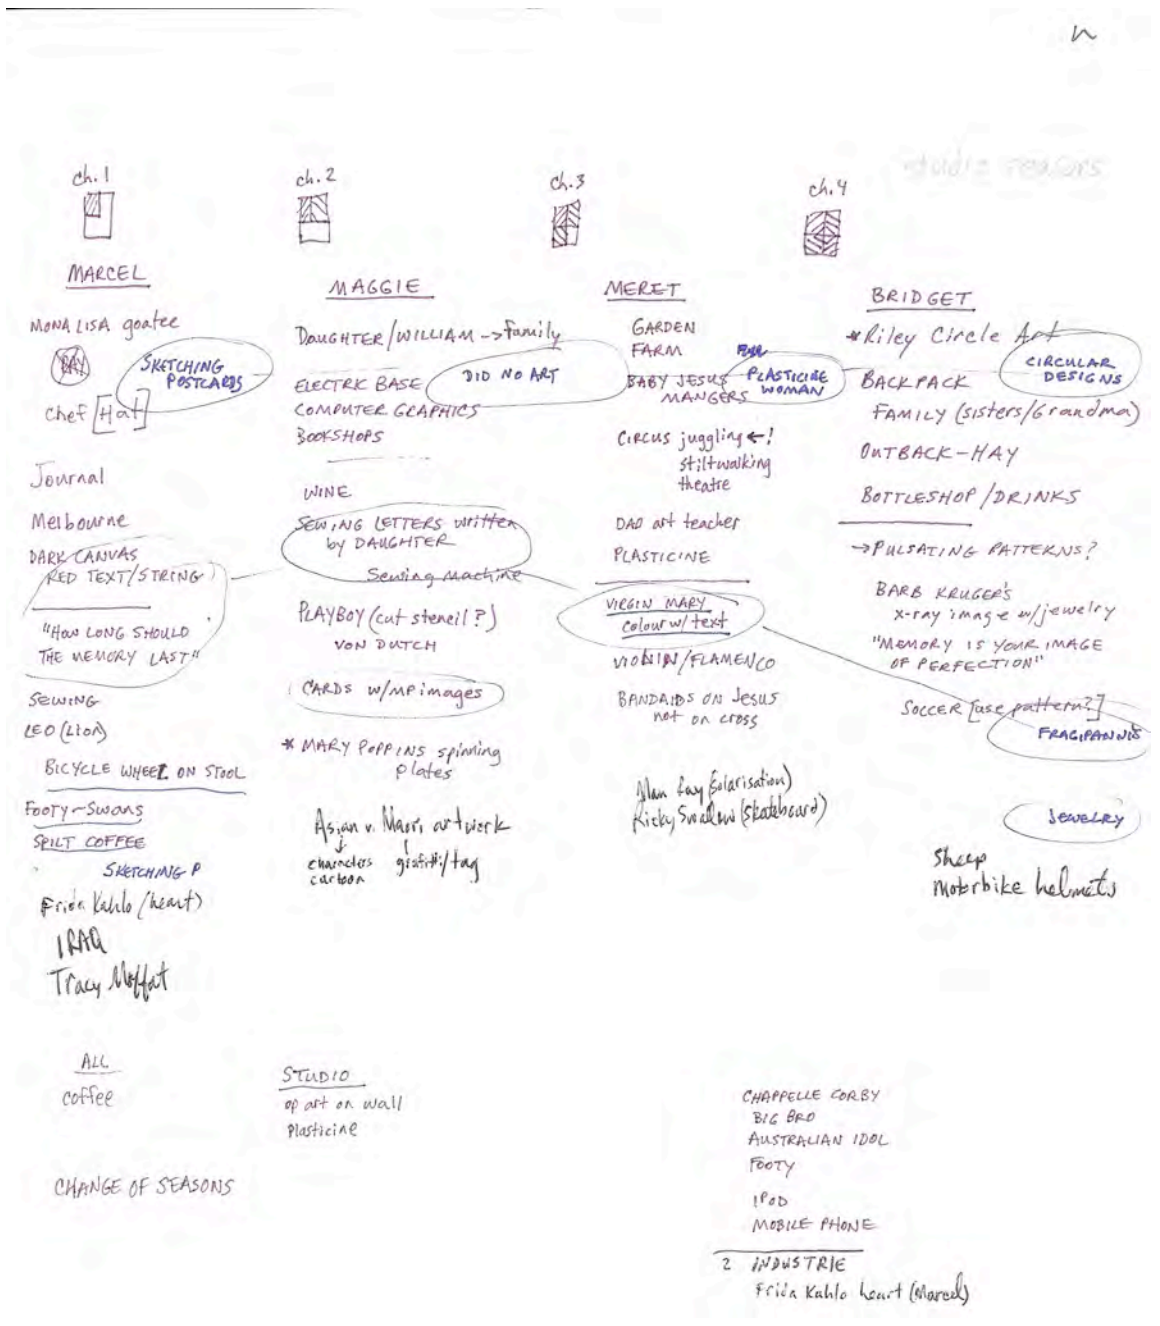 studio seasons
ch.1
MARCEL
MONA LISA goatee
SKETCHING
POSTCARDS
chef [Hat]
Journal
Melbourne
DARK CANVAS
RED TEXT/STRING
"HOW LONG SHOULD
THE MEMORY LAST"
SEWING
LEO (LION)
BICYCLE WHEEL ON STOOL
FOOTY-SWANS
SPILT COFFEE
SKETCHING P
Frida Kahlo (heart)
IRAQ
Tracy Moffat
ALL
coffee
CHANGE OF SEASONS
ch.2
MAGGIE
DAUGHTER/WILLIAM -> family
DID NO ART
ELECTRIC BASE
COMPUTER GRAPHICS
BOOKSHOPS
WINE
SEWING LETTERS written
by DAUGHTER
Sewing machine
PLAYBOY (cut stencil?)
VON DUTCH
CARDS w/MP images
* MARY POPPINS spinning
plates
Asian v. Maori artwork
characters grafitti/tag
cartoon
STUDIO
op art on wall
Plasticine
ch.3
MERET
GARDEN
FARM
PLASTICINE
WOMAN
BABY JESUS
MANGERS
CIRCUS juggling ←!
stiltwalking
theatre
DAD art teacher
PLASTICINE
VIRGIN MARY
colour w/text
VIOLIN/FLAMENCO
BANDAIDS ON JESUS
not on cross
Man Ray (Solarisation)
Ricky Swallow (Skateboard)
ch.4
BRIDGET
*Riley Circle Art
CIRCULAR
DESIGNS
BACKPACK
FAMILY (sisters/Grandma)
OUTBACK-HAY
BOTTLESHOP/DRINKS
→PULSATING PATTERNS?
BARB KRUGER'S
x-ray image w/jewelry
"MEMORY IS YOUR IMAGE
OF PERFECTION"
SOCCER [use pattern?]
FRAGIPANNIS
JEWELRY
Sheep
Motorbike helmets
CHAPPELLE CORBY
BIG BRO
AUSTRALIAN IDOL
FOOTY
IPOD
MOBILE PHONE
2 INDUSTRIE
Frida Kahlo heart (Marcel)